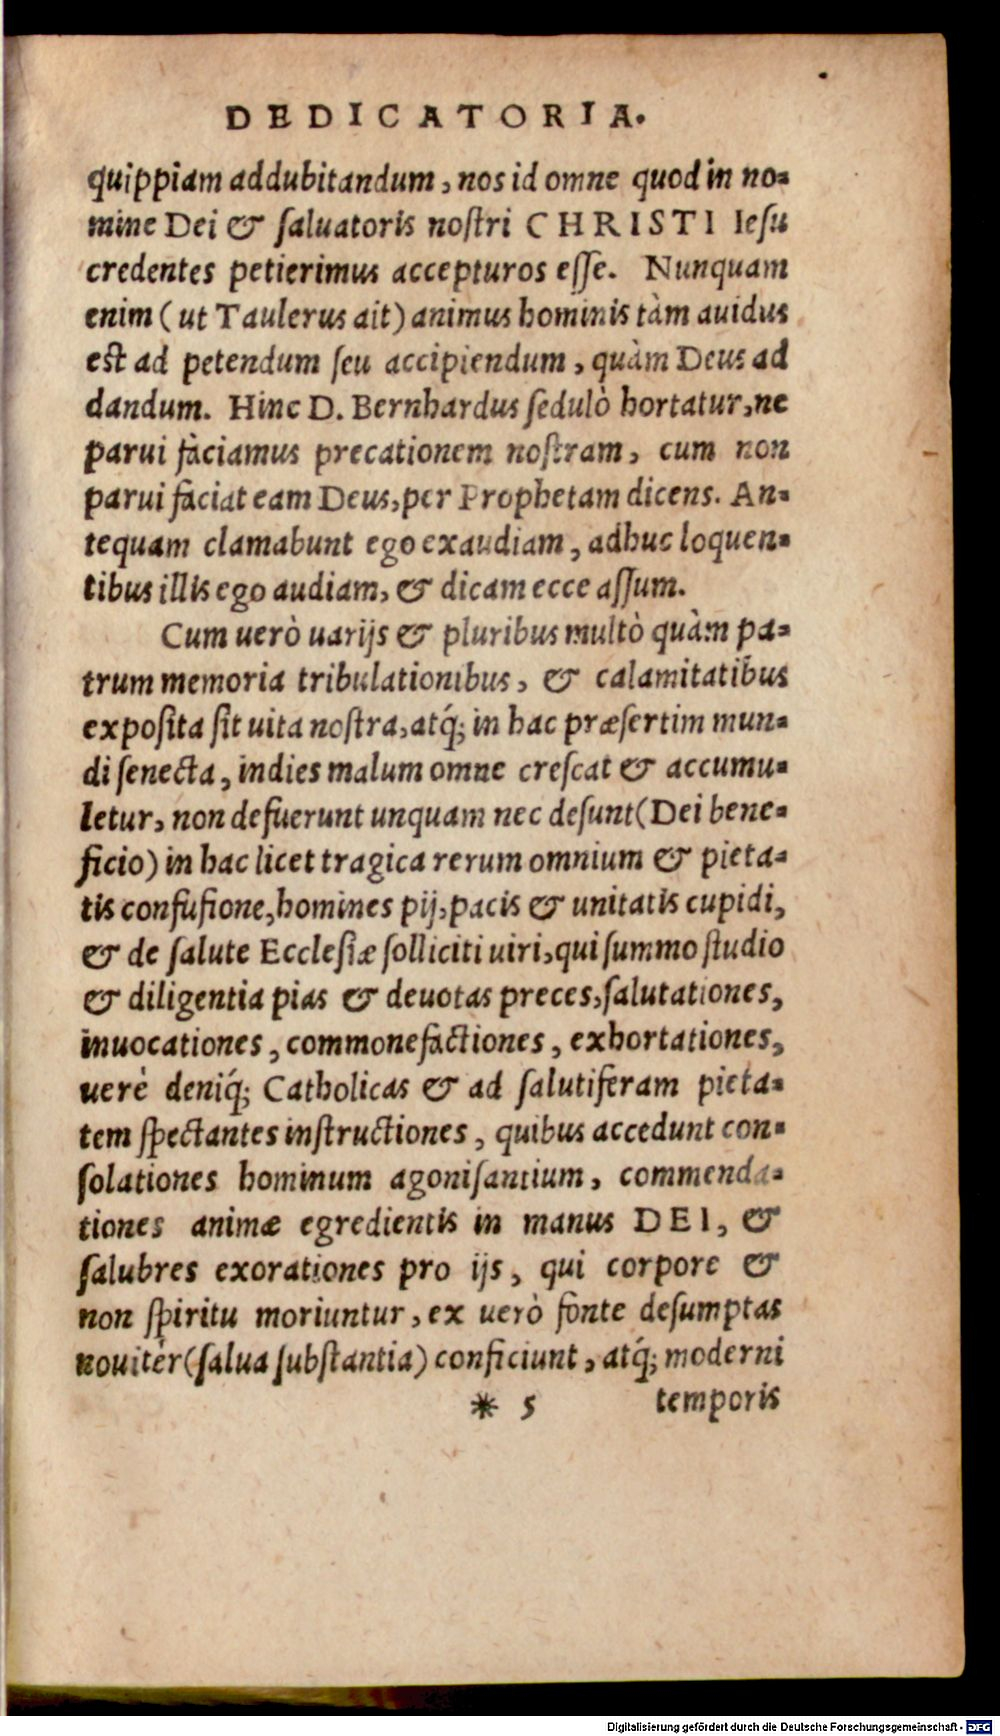 DEDICATORIA.
quippiam addubitandum, nos id omne quod in no-
mine Dei & ſaluatoris noſtri CHRISTI Ieſu
credentes petierimus accepturos eſſe. Nunquam
enim (ut Taulerus ait) animus hominis tàm auidus
est ad petendum ſeu accipiendum, quàm Deus ad
dandum. Hinc D. Bernhardus ſedulò hortatur, ne
parui fàciamus precationem noſtram, cum non
parui faciat eam Deus, per Prophetam dicens. An-
tequam clamabunt ego exaudiam, adhuc loquen-
tibus illis ego audiam, & dicam ecce aſſum.
Cum uerò uarijs & pluribus multò quàm pa-
trum memoria tribulationibus, & calamitatibus
expoſita ſit uita noſtra, atq́; in hac præſertim mun-
di ſenecta, indies malum omne creſcat & accumu-
letur, non defuerunt unquam nec deſunt (Dei bene-
ficio) in hac licet tragica rerum omnium & pieta-
tis confuſione, homines pij, pacis & unitatis cupidi,
& de ſalute Eccleſiæ ſolliciti uiri, qui ſummo ſtudio
& diligentia pias & deuotas preces, ſalutationes,
inuocationes, commonefactiones, exhortationes,
uerè deniq́; Catholicas & ad ſalutiferam pieta-
tem ſpectantes inſtructiones, quibus accedunt con-
ſolationes hominum agoniſantium, commenda-
tiones animæ egredientis in manus DEI, &
ſalubres exorationes pro ijs, qui corpore &
non ſpiritu moriuntur, ex uerò fonte deſumptas
nouitèr (ſalua ſubſtantia) conficiunt, atq́; moderni
* 5 temporis
Digitalisierung gefördert durch die Deutsche Forschungsgemeinschaft - DFG